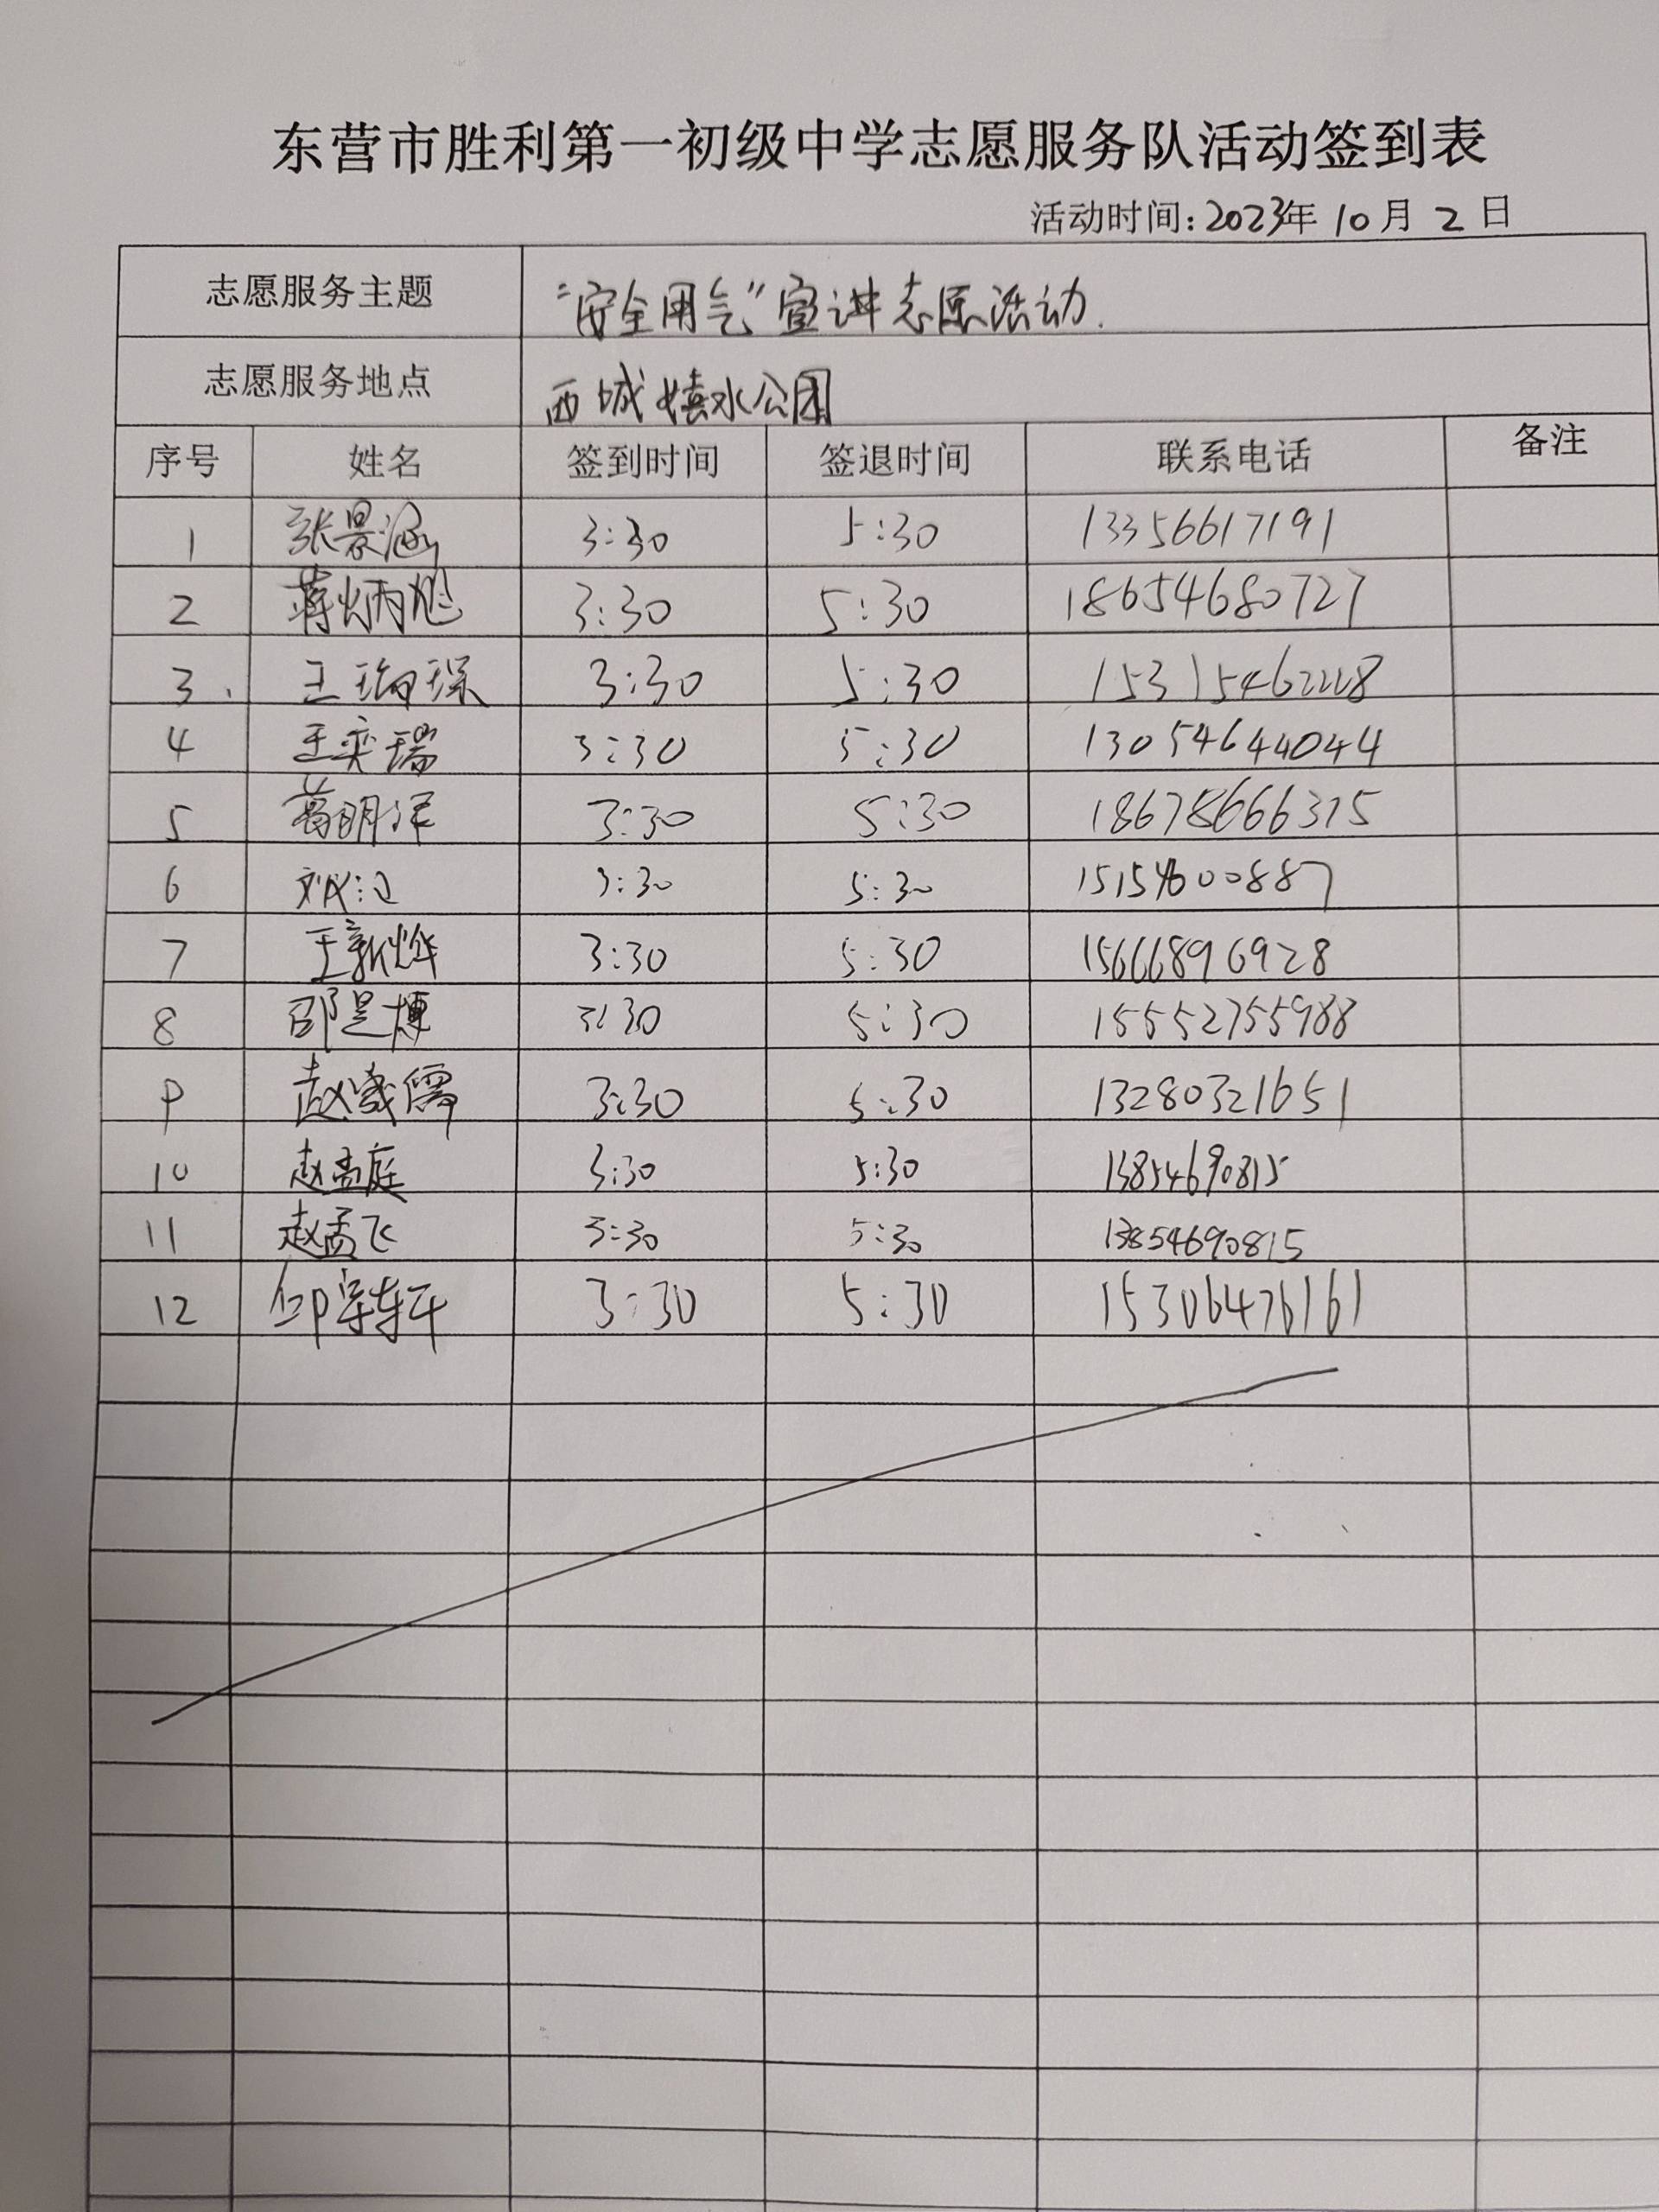 东营市胜利第一初级中学志愿服务队活动签到表
活动时间:2023年10月2日
志愿服务主题 "安全用气"宣讲志愿活动.
志愿服务地点 西城嬉水公园
序号 姓名 签到时间 签退时间 联系电话 备注
1 张景涵 3:30 5:30 13356617191
2 蒋炳旭 3:30 5:30 18654680727
3. 王瑜琛 3:30 5:30 15315462228
4 王奕瑞 3:30 5:30 13054644044
5 葛明泽 3:30 5:30 18678666315
6 3:30 5:30 15154600887
7 王新烨 3:30 5:30 15666896928
8 邵是博 3:30 5:30 15552755988
9 赵崴儒 3:30 5:30 13280321651
10 赵孟庭 3:30 5:30 13854690815
11 赵孟飞 3:30 5:30 13854690815
12 邱宇轩 3:30 5:30 15306476161